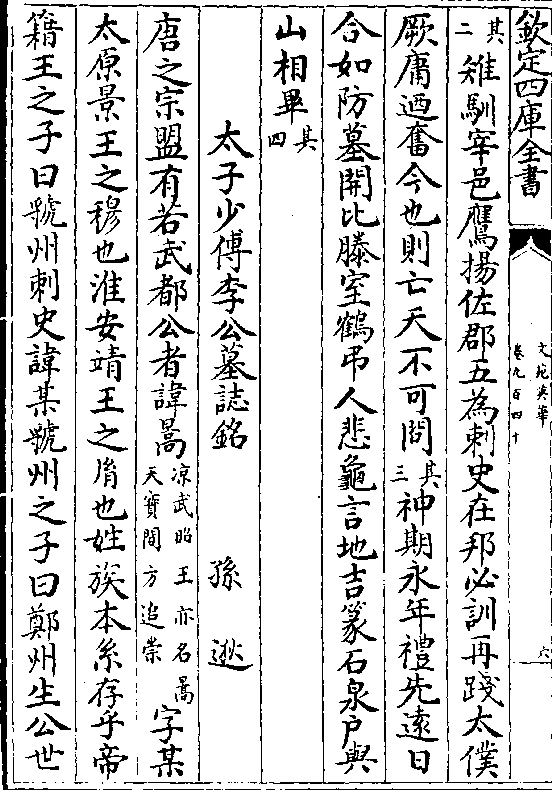 欽定四庫全書
文苑英華
卷九百四十
六
其二雉馴宰邑鷹揚佐郡五為刺史在邦必訓再踐太僕
厥庸迺奮今也則亡天不可問其三神期永年禮先遠日
合如防墓開比滕室鶴弔人悲龜言地吉篆石泉户與
山相畢其四
太子少傅李公墓誌銘 孫逖
唐之宗盟有若武都公者諱暠凉武昭王亦名暠天寳間方追崇字某
太原景王之穆也淮安靖王之胤也姓族本系存乎帝
籍王之子曰虢州刺史諱某虢州之子曰鄭州生公世